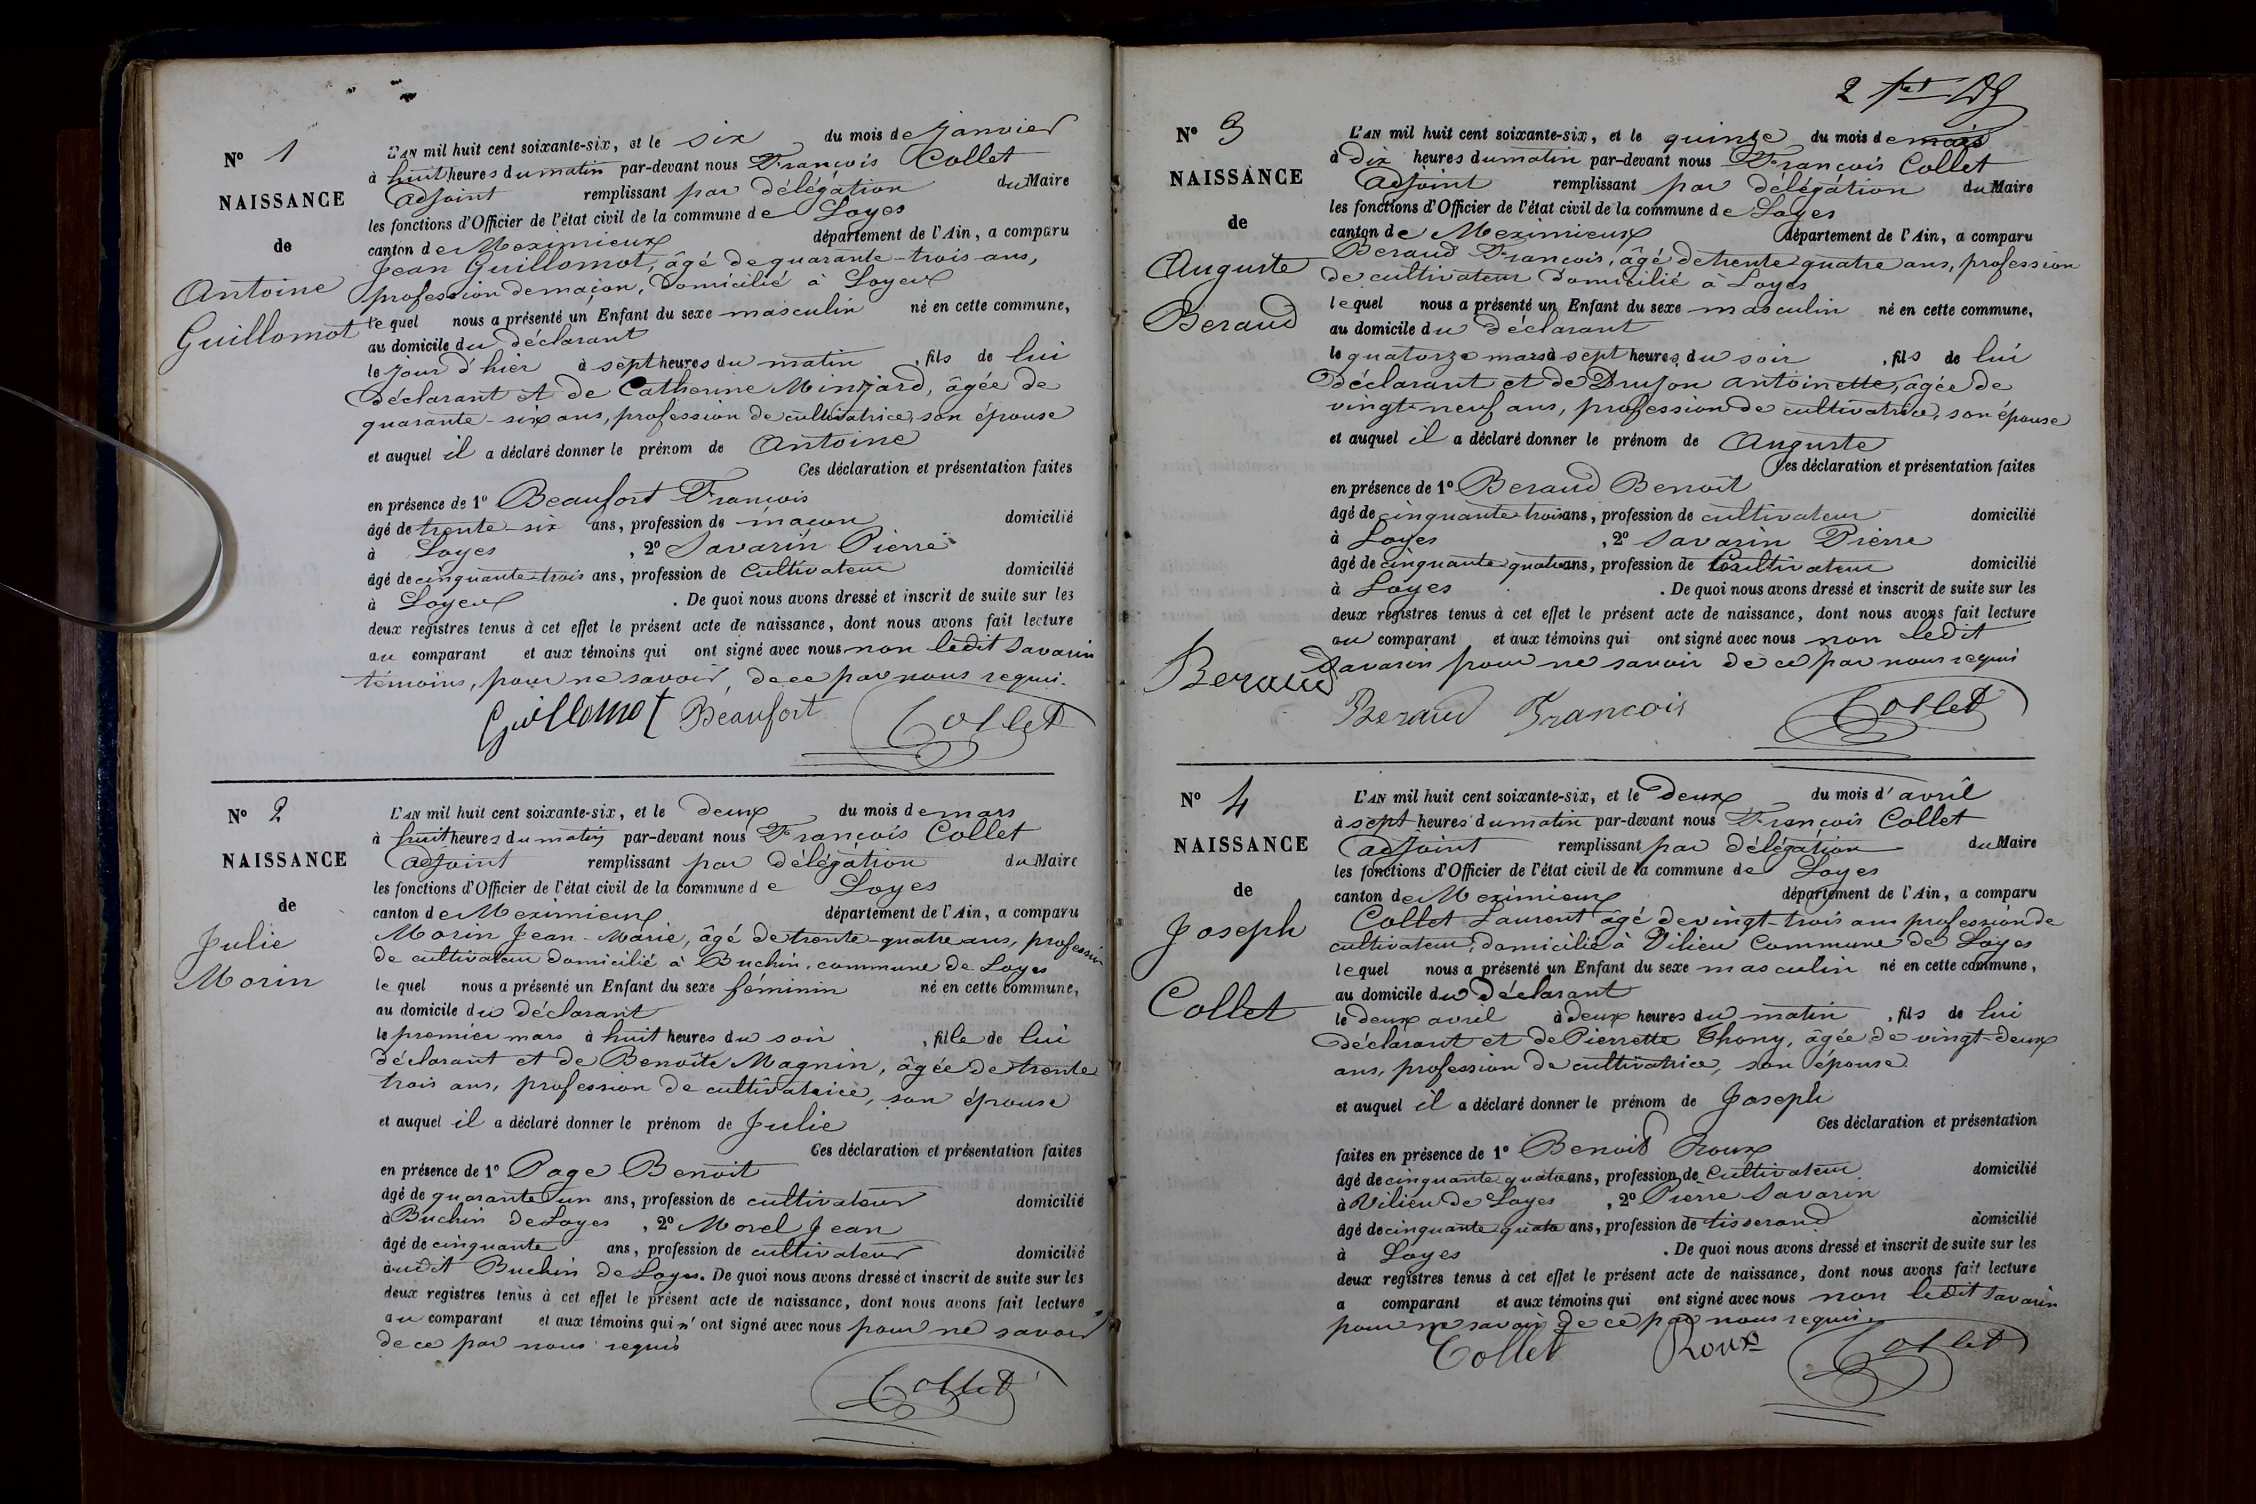 Nº 1
NAISSANCE
de
Antoine
Guillomot
L'AN mil huit cent soixante-six, et le six du mois de Janvier
à huit heures du matin par-devant nous François Collet
adjoint remplissant par délégation du Maire
les fonctions d'Officier de l'état civil de la commune de Loyes
canton de Meximieux département de l'Ain, a comparu
Jean Guillomot, âgé de quarante-trois ans,
profession de maçon, domicilié à Loyes
lequel nous a présenté un Enfant du sexe masculin né en cette commune,
au domicile du déclarant
le jour d'hier à sept heures du matin, fils de lui
déclarant et de Catherine Minjard, âgée de
quarante-six ans, profession de cultivatrice, son épouse
et auquel il a déclaré donner le prénom de Antoine
Ces déclaration et présentation faites
en présence de 1º Beaufort François
âgé de trente-six ans, profession de maçon domicilié
à Loyes, 2º Savarin Pierre
âgé de cinquante trois ans, profession de Cultivateur domicilié
à Loyes. De quoi nous avons dressé et inscrit de suite sur les
deux registres tenus à cet effet le présent acte de naissance, dont nous avons fait lecture
au comparant et aux témoins qui ont signé avec nous non ledit Savarin
témoins, pour ne savoir, de ce par nous requis.
Guillomot Beaufort Collet
Nº 2
NAISSANCE
de
Julie
Morin
L'AN mil huit cent soixante-six, et le deux du mois de mars
à huit heures du matin par-devant nous François Collet
adjoint remplissant par délégation du Maire
les fonctions d'Officier de l'état civil de la commune de Loyes
canton de Meximieux département de l'Ain, a comparu
Morin Jean-Marie, âgé de trente-quatre ans, profession
de cultivateur domicilié à Buchin, commune de Loyes
lequel nous a présenté un Enfant du sexe féminin né en cette commune,
au domicile du déclarant
le premier mars à huit heures du soir, fille de lui
déclarant et de Benoîte Magnin, âgée de trente
trois ans, profession de cultivatrice, son épouse
et auquel il a déclaré donner le prénom de Julie
Ces déclaration et présentation faites
en présence de 1º Page Benoit
âgé de quarante un ans, profession de cultivateur domicilié
à Buchin de Loyes, 2º Morel Jean
âgé de cinquante ans, profession de cultivateur domicilié
audit Buchin de Loyes. De quoi nous avons dressé et inscrit de suite sur les
deux registres tenus à cet effet le présent acte de naissance, dont nous avons fait lecture
au comparant et aux témoins qui n'ont signé avec nous pour ne savoir
de ce par nous requis
Collet
2
Nº 3
NAISSANCE
de
Auguste
Beraud
L'AN mil huit cent soixante-six, et le quinze du mois de mars
à Dix heures du matin par-devant nous François Collet
adjoint remplissant par délégation du Maire
les fonctions d'Officier de l'état civil de la commune de Loyes
canton de Meximieux département de l'Ain, a comparu
Beraud François, âgé de trente quatre ans, profession
de cultivateur domicilié à Loyes
lequel nous a présenté un Enfant du sexe masculin né en cette commune,
au domicile du déclarant
le quatorze mars à sept heures du soir, fils de lui
déclarant et de Drujon antoinette, âgée de
vingt-neuf ans, profession de cultivatrice, son épouse
et auquel il a déclaré donner le prénom de Auguste
Ces déclaration et présentation faites
en présence de 1º Beraud Benoit
âgé de cinquante trois ans, profession de cultivateur domicilié
à Loyes, 2º Savarin Pierre
âgé de cinquante quatre ans, profession de Cultivateur domicilié
à Loyes. De quoi nous avons dressé et inscrit de suite sur les
deux registres tenus à cet effet le présent acte de naissance, dont nous avons fait lecture
au comparant et aux témoins qui ont signé avec nous non ledit
Savarin pour ne savoir de ce par nous requis
Beraud
Beraud François Collet
Nº 4
NAISSANCE
de
Joseph
Collet
L'AN mil huit cent soixante-six, et le deux du mois d'avril
à sept heures du matin par-devant nous François Collet
adjoint remplissant par délégation du Maire
les fonctions d'Officier de l'état civil de la commune de Loyes
canton de Meximieux département de l'Ain, a comparu
Collet Laurent âgé de vingt-trois ans profession de
cultivateur, domicilié à Vilieu Commune de Loyes
lequel nous a présenté un Enfant du sexe masculin né en cette commune,
au domicile du Déclarant
le deux avril à deux heures du matin, fils de lui
déclarant et de Pierrette Thony, âgée de vingt-deux
ans, profession de cultivatrice, son épouse
et auquel il a déclaré donner le prénom de Joseph
Ces déclaration et présentation
faites en présence de 1º Benoit Roux
âgé de cinquante quatre ans, profession de Cultivateur domicilié
à Vilieu de Loyes, 2º Pierre Savarin
âgé de cinquante quatre ans, profession de tisserand domicilié
à Loyes. De quoi nous avons dressé et inscrit de suite sur les
deux registres tenus à cet effet le présent acte de naissance, dont nous avons fait lecture
a comparant et aux témoins qui ont signé avec nous non ledit Savarin
pour ne savoir de ce par nous requis.
Collet Roux Collet